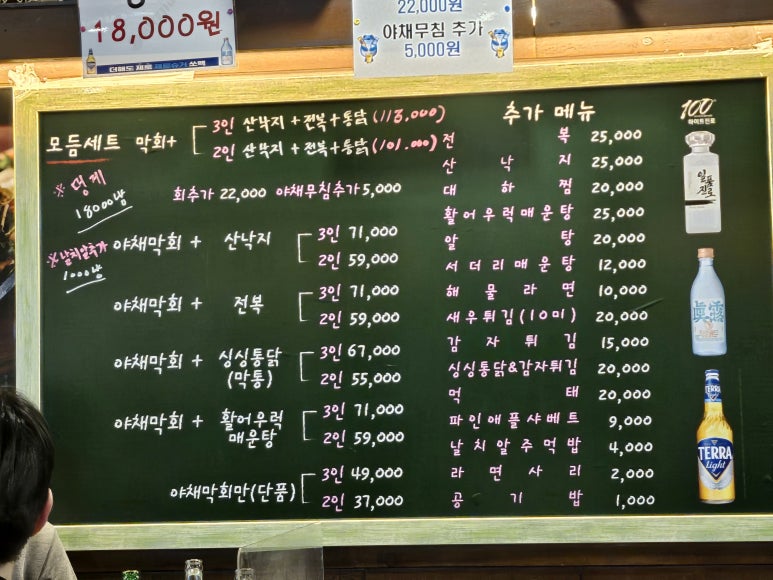 18,000원
22,000원
야채무침 추가
5,000원
모듬세트 막회+
3인 산낙지+전복+통닭(113,000)
2인 산낙지+전복+통닭(101.000)
※ 멍게
18000냥
회추가 22,000 야채무침추가 5,000
※날치알추가
1000냥
야채막회 + 산낙지
3인 71,000
2인 59,000
야채막회 + 전복
3인 71,000
2인 59,000
야채막회 + 싱싱통닭
(막통)
3인 67,000
2인 55,000
야채막회 + 활어우럭
매운탕
3인 71,000
2인 59,000
야채막회만(단품)
3인 49,000
2인 37,000
추가 메뉴
전복 25,000
산낙지 25,000
대하찜 20,000
활어우럭매운탕 25,000
알탕 20,000
서더리매운탕 12,000
해물라면 10,000
새우튀김(10미) 20,000
감자튀김 15,000
싱싱통닭&감자튀김 20,000
먹태 20,000
파인애플샤베트 9,000
날치알주먹밥 4,000
라면사리 2,000
공기밥 1,000
100
하이트진로
일품
진로
眞露
TERRA
TERRA
Light